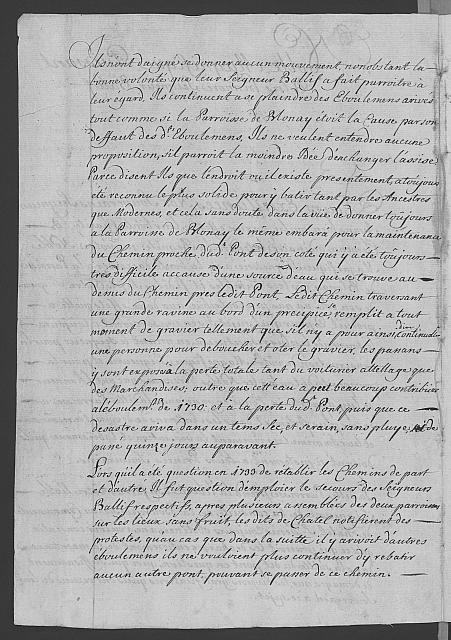 Ils n'ont daigné se donner aucun mouvement, nonobstant la
bonne volonté que leur Seigneur Ballif a fait parroitre à
leur égard. Ils continuent a se plaindre des Eboulemens arivés
tout comme si la Parroisse de Blonay étoit la Cause par son
deffaut des dts Eboulemens. Ils ne veulent entendre aucune
proposition, s'il parroit la moindre Idée de changer l'assise
Parce disent Ils que lendroit ou il existe presentement, a toujours
été reconnu le plus solide pour y batir tant par les Ancestres
que Modernes, et cela sans doute dans la vüe de donner toujours
à la Parroisse de Blonay le même embaras pour la maintenance
du Chemin proche dud. Pont de son coté qui y a été toujours
tres difficile accause d'une source d'eau qui se trouve au
dessus du Chemin pres le dit Pont, Ledit Chemin traversant
une grande ravine au bord d'un precipice, se remplit a tout
moment de gravier tellement que s'il n'y a pour ainsi dire continuell.
une personne pour deboucher et oter le gravier, les passans
y sont exposés a la perte totale tant du voiturier attellage que
des Marchandises; outre que cett'eau a peut beaucoup contribuer
a l'éboulemt. de 1730. et à la perte dud. Pont, puis que ce
desastre ariva dans un tems sec, et serain, sans pluye, de
passé quinze jours auparavant.
Lors qu'il a été question en 1733 de rétablir les Chemins de part
et d'autre Il fut question d'emploïer le secours des Seigneurs
Ballifs respectifs, apres plusieurs assemblées des deux parroisses
sur les lieux sans fruit, les dits de Chatel notifièrent des
protestes, qu'au cas que dans la suitte il y arivoit d'autres
éboulemens ils ne vouloient plus continuer d'y rebatir
aucun autre pont, pouvant se passer de ce chemin.